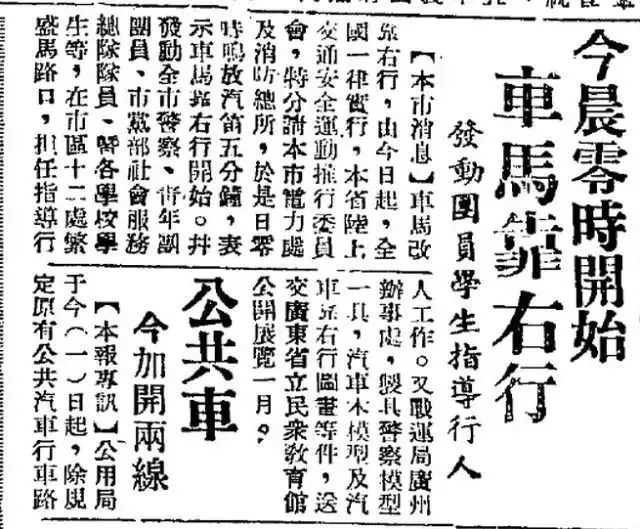 今晨零時開始
車馬靠右行
發動團員學生指導行人
【本市消息】車馬改
靠右行,由今日起,全
國一律實行,本省陸上
交通安全運動推行委員
會,特分請本市電力處
及消防總所,於是日零
時鳴放汽笛五分鐘,表
示車馬靠右行開始。幷
發動全市警察、青年團
團員、市黨部社會服務
總隊隊員、暨各學校學
生等,在市區十二處繁
盛馬路口,担任指導行
人工作。又戰運局廣州
辦事處,製具警察模型
一具,汽車木模型及汽
車靠右行圖畫等件,送
交廣東省立民衆教育館
公開展覽一月。
公共車
今加開兩線
【本報專訊】公用局
于今(一)日起,除規
定原有公共汽車行車路